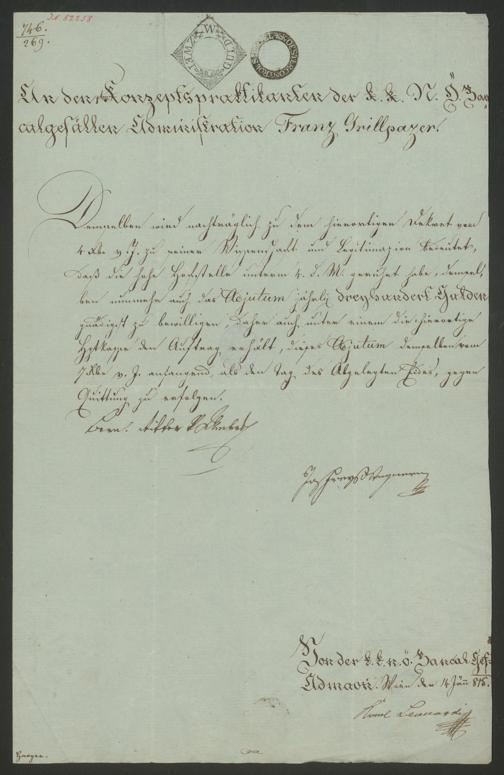 IN 62258
746.
269.
ZWEI W GULD
An den Konzeptspraktikanten der k. k. N. Ö. Ban
calgefällen Administration Franz Grillpazer.
Demselben wird nachträglich zu dem hierortigen Dekret vom
zu seiner Wissenschaft und Legitimazion bedeutet,
daß die hohe Hofstelle unterm 4. d. M. geruhet habe, demsel-
ben nunmehr auch das Adjutum jährlich dreyhundert Gulden
gnädigst zu bewilligen, daher auch unter einem die hierortige
den Auftrag erhält, dieses Adjutum demselben vom
v. J. anfangend, als den Tag des abgelegten Eides, gegen
Quittung zu erfolgen.
Von der k. k. n. ö. Bancal Gef.
Admaon. Wien den 14 Jän 815.